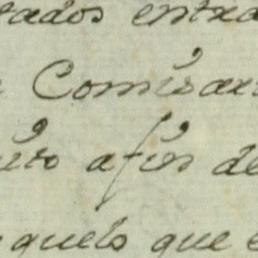 tados entra
Comisar
afin de
quelo que e